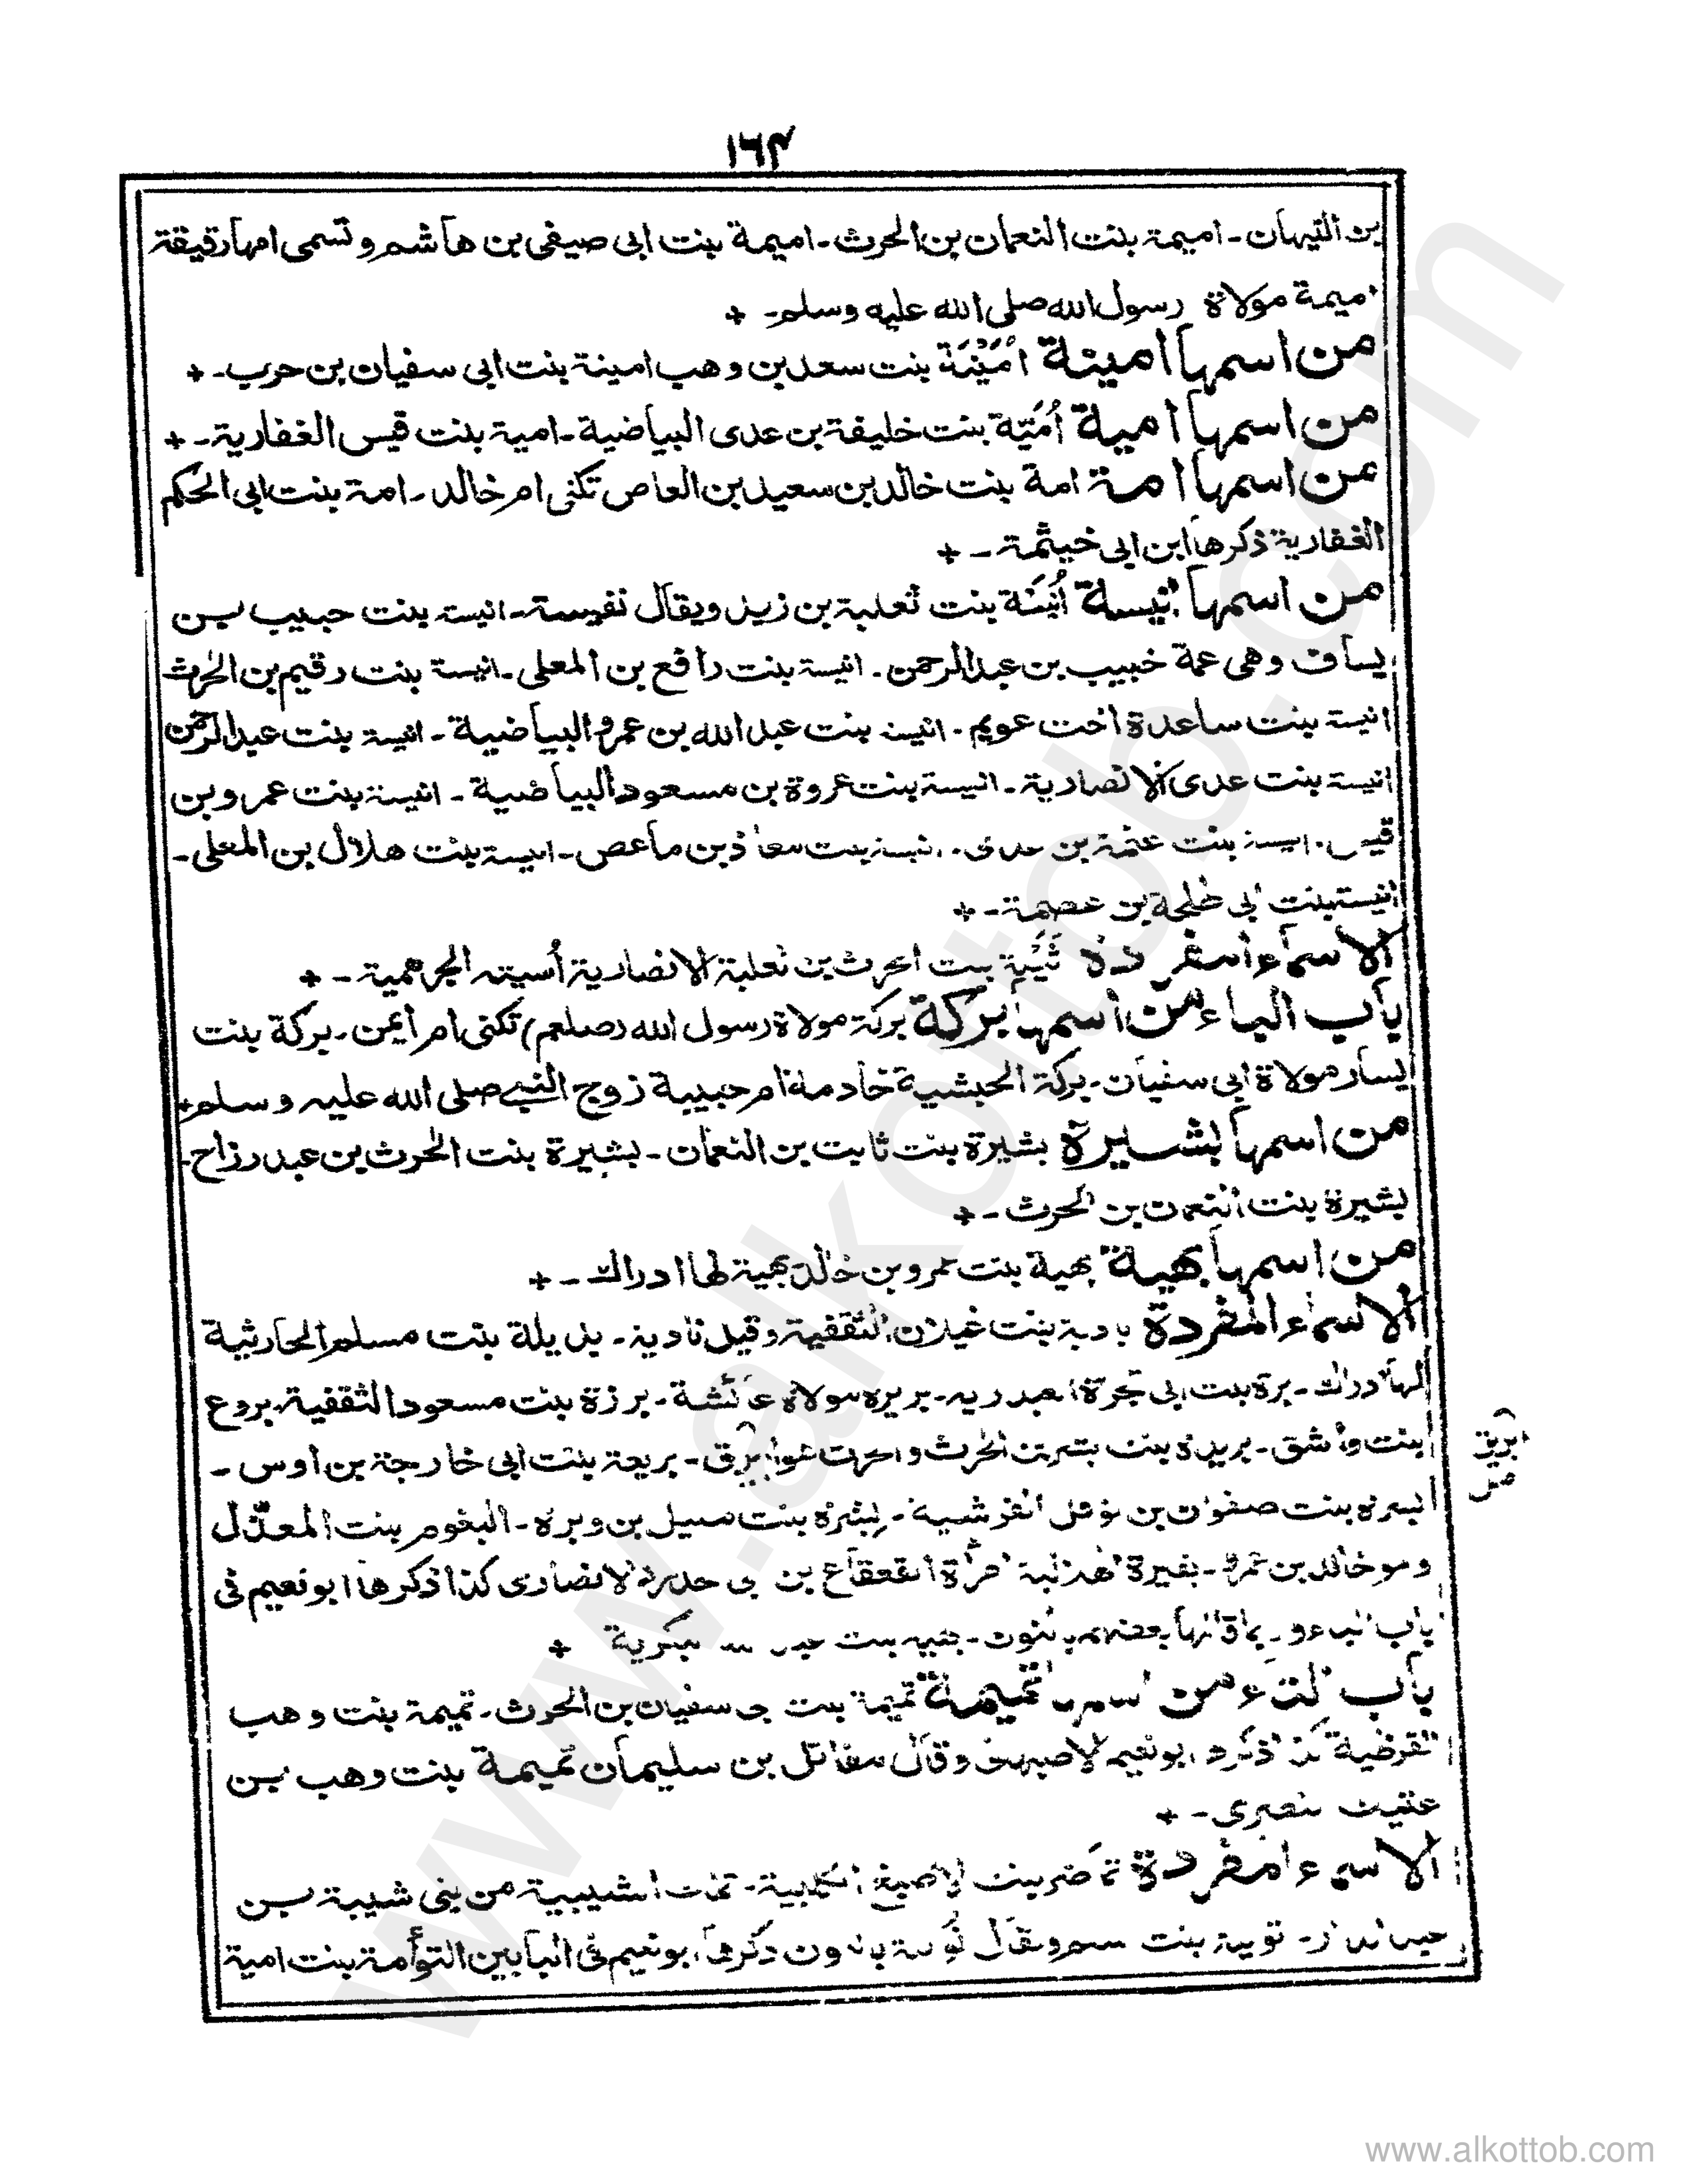 ١٦٤
بن التيهان ـ اميمة بنت النعمان بن الحرث ـ اميمة بنت ابى صيفى بن هاشم وتسمى امها رقيقة
اميمة مولاة رسول الله صلى الله عليه وسلم ـ +
من اسمها امينة اُمَيْنَة بنت سعد بن وهب امينة بنت ابى سفيان بن حرب ـ +
من اسمها امية اُمَيّة بنت خليفة بن عدى البياضية ـ امية بنت قيس الغفارية ـ +
من اسمها امة امة بنت خالد بن سعيد بن العاص تكنى ام خالد ـ امة بنت ابى الحكم
الغفارية ذكرها ابن ابى خيثمة ـ +
من اسمها انيسة اُنَيْسَة بنت ثعلبة بن زيد ويقال نفيسة ـ انيسة بنت حبيب بن
يساف وهى عمة خبيب بن عبد الرحمن ـ انيسة بنت رافع بن المعلى ـ انيسة بنت رقيم بن الحرث
انيسة بنت ساعدة اخت عويم ـ انيسة بنت عبد الله بن عمرو البياضية ـ انيسة بنت عبد الرحمن
انيسة بنت عدى الانصارية ـ انيسة بنت عروة بن مسعود البياضية ـ انيسة بنت عمرو بن
قيس ـ انيسة بنت عنمة بن عدى ـ انيسة بنت معاذ بن ماعص ـ انيسة بنت هلال بن المعلى ـ
انيسة بنت ابى طلحة بن عصمة ـ +
الاسماء المفردة بنت الحرث بن ثعلبة الانصارية الجرهمية ـ +
باب الباء من اسمها بركة بركة مولاة رسول الله (صلعم) تكنى ام ايمن ـ بركة بنت
يسار مولاة ابى سفيان ـ بركة الحبشية خادمة ام حبيبة زوج النبى صلى الله عليه وسلم +
من اسمها بشيرة بشيرة بنت ثابت بن النعمان ـ بشيرة بنت الحرث بن عبد رزاح ـ
بشيرة بنت النعمان بن الحرث ـ +
من اسمها بهية بهية بنت عمرو بن خالد بهية لها ادراك ـ +
الاسماء المفردة بادية بنت غيلان الثقفية وقيل نادية ـ بديلة بنت مسلم الحارثية
لها ادراك ـ برة بنت ابى تجرة العبدرية ـ بريرة مولاة عائشة ـ برزة بنت مسعود الثقفية ـ بروع
بنت واشق ـ بريدة بنت بشر بن الحرث ـ بريعة بنت ابى خارجة بن اوس ـ
ابريق
بسرة بنت صفوان بن نوفل القرشية ـ بنت مليل بن وبرة ـ البغوم بنت المعذل
بن عمرة ـ بقيرة الهذلية امرأة القعقاع بن ابى حدرد الانصارى كذا ذكرها ابو نعيم فى
باب الباء و بعضهم بالنون ـ بنت البكرية +
باب التاء من اسمها تميمة تميمة بنت ابى سفيان بن الحرث ـ تميمة بنت وهب
القرظية كذا ذكره ابو نعيم الاصبهانى وقال مقاتل بن سليمان تميمة بنت وهب بن
عتيك النضرى ـ +
الاسماء المفردة تماضر بنت الاصبغ الكلبية ـ الشيبية من بنى شيبة بن
عبد الدار ـ توبية بنت ويقال بالنون ذكرها ابو نعيم فى البابين التوأمة بنت امية
www.alkottob.com